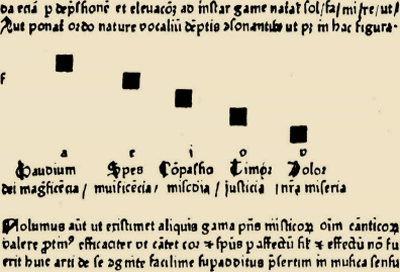 da eciā p dep̄ssionē et eleuacōꝫ ad instar game natāt sol/fa/mi/re/ut/
Aut ponat̄ ordo nature vocaliū dēptis ↄsonantibꝰ ut pꝫ in hac figura·
f
a e i o v
Gaudium Spes Cōpassio Timor Dolor
dei mag̅ficēcia / muificēcia / misc̄dia / iusticia / nr̄a miseria
Nolumus aūt ut existimet aliquis gama pn̄s misticoꝝ oīm cānticoꝝ
valere efficaciter ut cātet cor spūs affectū fit effectū nō fu
erit huic arti de se facilime supadditus p̄sertim in musica sensu